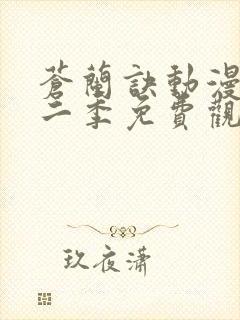 蒼蘭訣動漫
二季免費觀
玖夜瀟